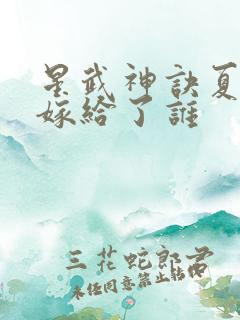 星武神訣夏
嫁給了誰
三花蛇郎君
未经同意禁止转载